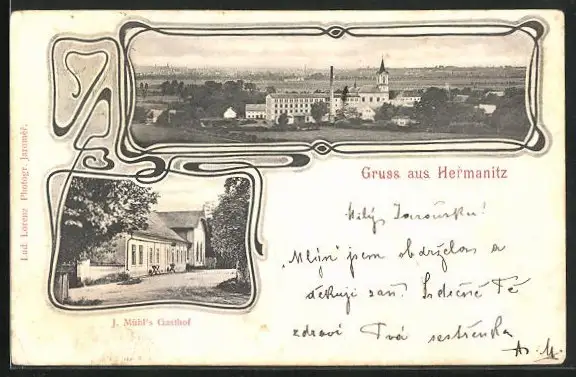 Lud. Lorenz Photogr. Jaroměř.
Gruss aus Heřmanitz
J. Mühl's Gasthof
Milý Jaroušku!
„Mlýn" jsem obdržela a
děkuji zaň. Srdečně Tě
zdraví Tvá sestřenka
A. M.